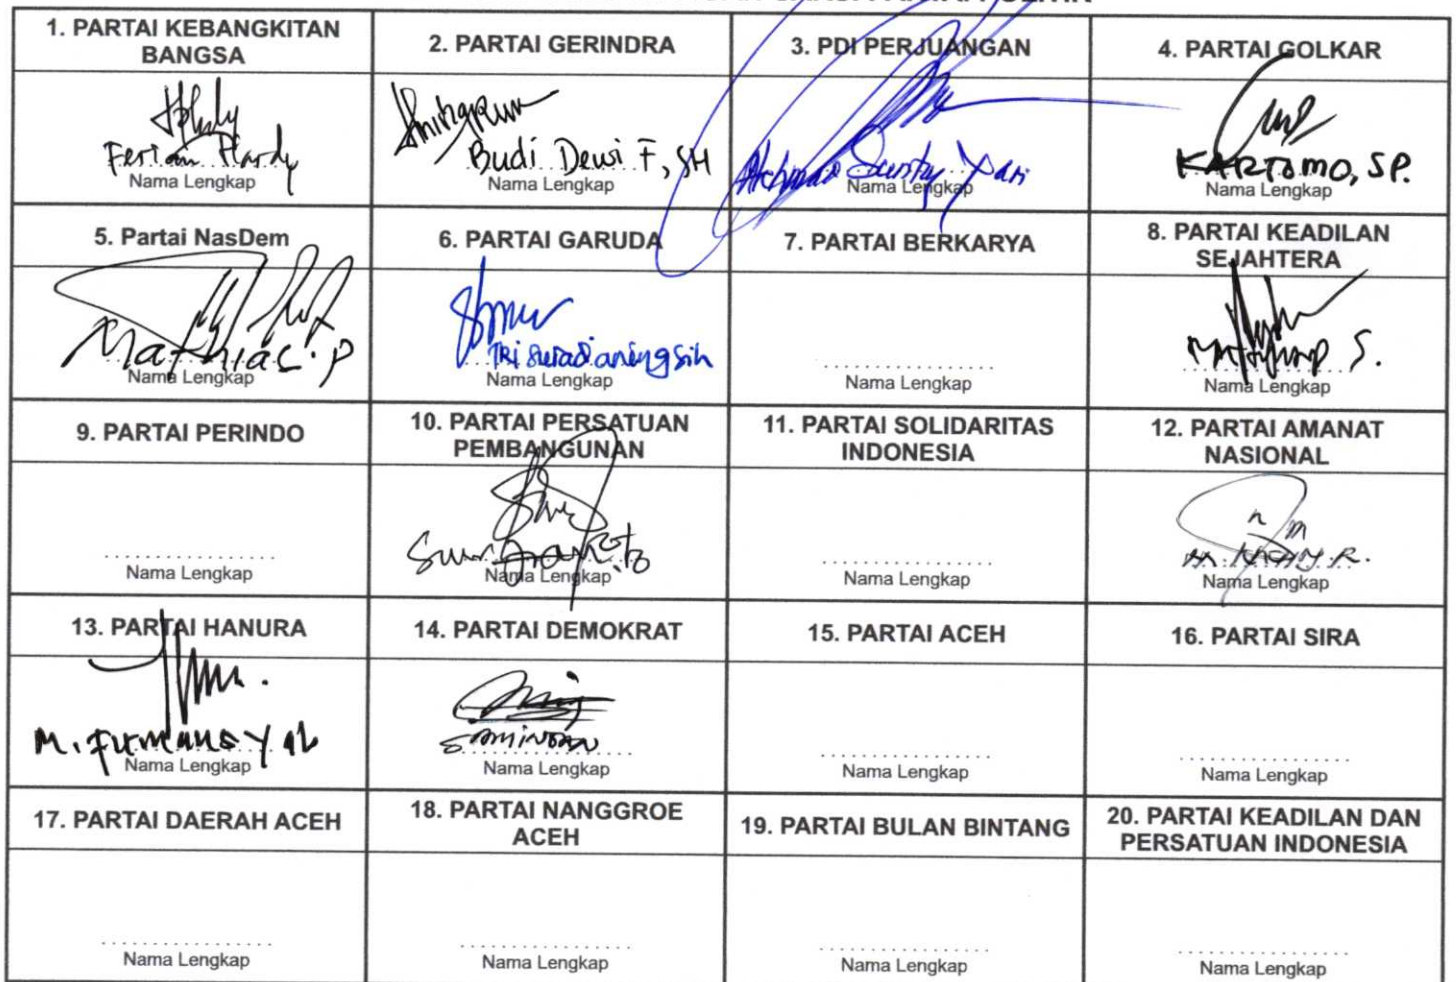 1. PARTAI KEBANGKITAN
BANGSA
2. PARTAI GERINDRA
3. PDI PERJUANGAN
4. PARTAI GOLKAR
Ferian Hardy
Nama Lengkap
Budi Dewi F, SH
Nama Lengkap
Nama Lengkap
KARTOMO, SP.
Nama Lengkap
5. Partai NasDem
6. PARTAI GARUDA
7. PARTAI BERKARYA
8. PARTAI KEADILAN
SEJAHTERA
Mathias. P
Nama Lengkap
Nama Lengkap
Nama Lengkap
S.
Nama Lengkap
9. PARTAI PERINDO
10. PARTAI PERSATUAN
PEMBANGUNAN
11. PARTAI SOLIDARITAS
INDONESIA
12. PARTAI AMANAT
NASIONAL
Nama Lengkap
Nama Lengkap
Nama Lengkap
Nama Lengkap
13. PARTAI HANURA
14. PARTAI DEMOKRAT
15. PARTAI ACEH
16. PARTAI SIRA
M. Firmansyah
Nama Lengkap
Nama Lengkap
Nama Lengkap
Nama Lengkap
17. PARTAI DAERAH ACEH
18. PARTAI NANGGROE
ACEH
19. PARTAI BULAN BINTANG
20. PARTAI KEADILAN DAN
PERSATUAN INDONESIA
Nama Lengkap
Nama Lengkap
Nama Lengkap
Nama Lengkap